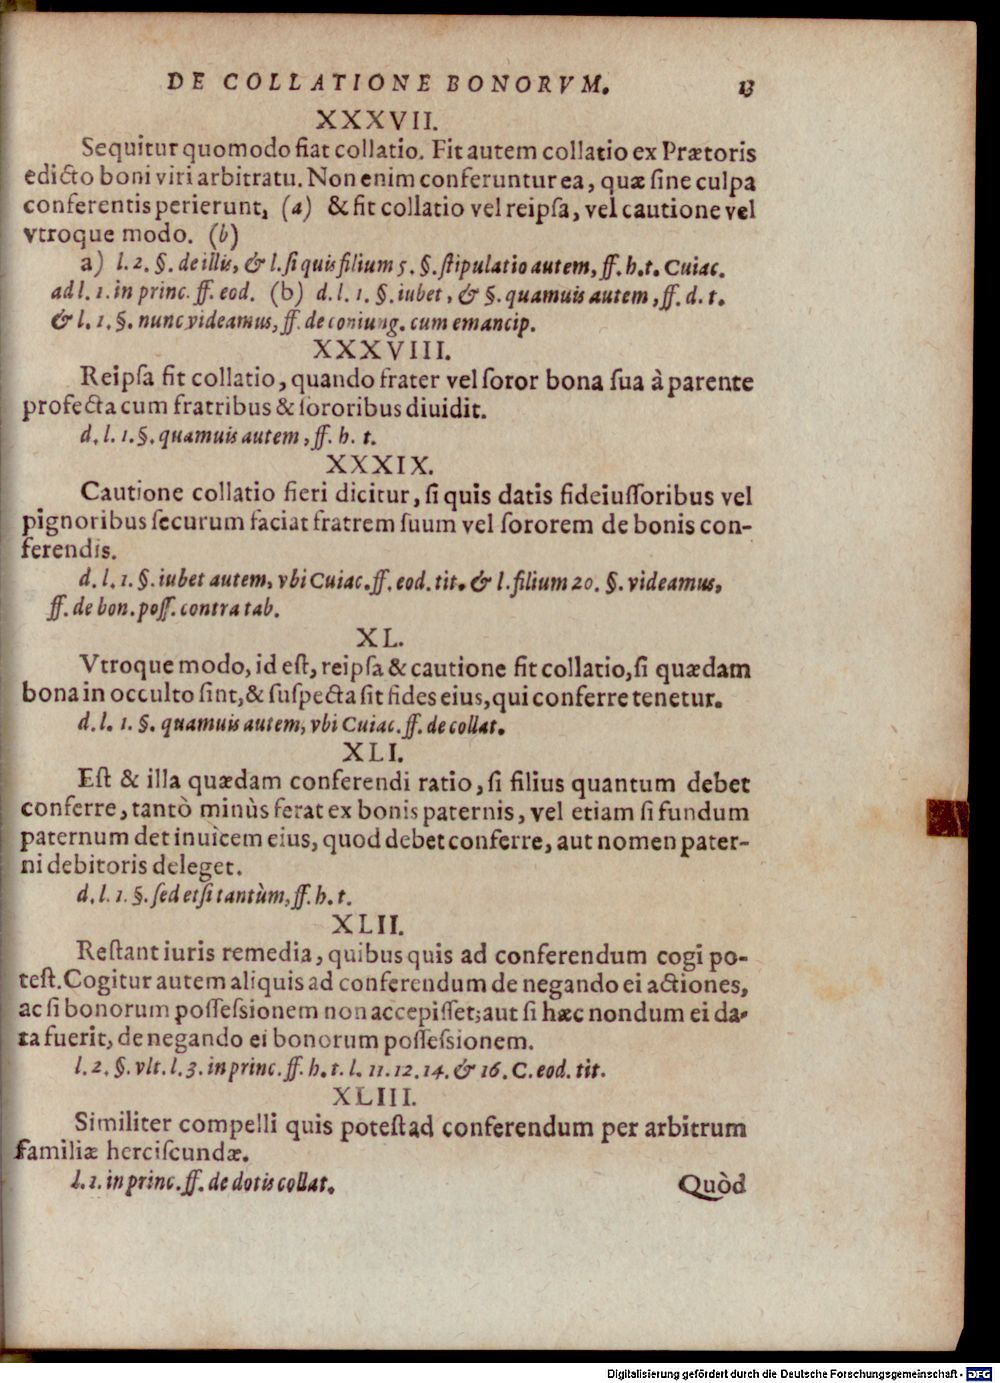 DE COLLATIONE BONORVM. 13
XXXVII.
Sequitur quomodo fiat collatio. Fit autem collatio ex Prætoris
edicto boni viri arbitratu. Non enim conferuntur ea, quæ ſine culpa
conferentis perierunt, (a) & fit collatio vel reipſa, vel cautione vel
vtroque modo. (b)
a) l. 2. §. de illis, & l. ſi quis filium 5. §. ſtipulatio autem, ff. h. t. Cuiac.
ad l. 1. in princ. ff. eod. (b) d. l. 1. §. iubet, & §. quamuis autem, ff. d. t.
& l. 1. §. nunc videamus, ff. de coniung. cum emancip.
XXXVIII.
Reipſa fit collatio, quando frater vel ſoror bona ſua à parente
profecta cum fratribus & ſororibus diuidit.
d. l. 1. §. quamuis autem, ff. h. t.
XXXIX.
Cautione collatio fieri dicitur, ſi quis datis fideiuſſoribus vel
pignoribus ſecurum faciat fratrem ſuum vel ſororem de bonis con-
ferendis.
d. l. 1. §. iubet autem, vbi Cuiac. ff. eod. tit. & l. filium 20. §. videamus,
ff. de bon. poſſ. contra tab.
XL.
Vtroque modo, id eſt, reipſa & cautione fit collatio, ſi quædam
bona in occulto ſint, & ſuſpecta ſit fides eius, qui conferre tenetur.
d. l. 1. §. quamuis autem, vbi Cuiac. ff. de collat.
XLI.
Eſt & illa quædam conferendi ratio, ſi filius quantum debet
conferre, tantò minùs ferat ex bonis paternis, vel etiam ſi fundum
paternum det inuicem eius, quod debet conferre, aut nomen pater-
ni debitoris deleget.
d. l. 1. §. ſed etſi tantùm, ff. h. t.
XLII.
Reſtant iuris remedia, quibus quis ad conferendum cogi po-
teſt. Cogitur autem aliquis ad conferendum de negando ei actiones,
ac ſi bonorum poſſeſsionem non accepiſſet; aut ſi hæc nondum ei da-
ta fuerit, de negando ei bonorum poſſeſsionem.
l. 2. §. vlt. l. 3. in princ. ff. h. t. l. 11. 12. 14. & 16. C. eod. tit.
XLIII.
Similiter compelli quis poteſt ad conferendum per arbitrum
familiæ herciſcundæ.
l. 1. in princ. ff. de dotis collat. Quòd
Digitalisierung gefördert durch die Deutsche Forschungsgemeinschaft - DFG